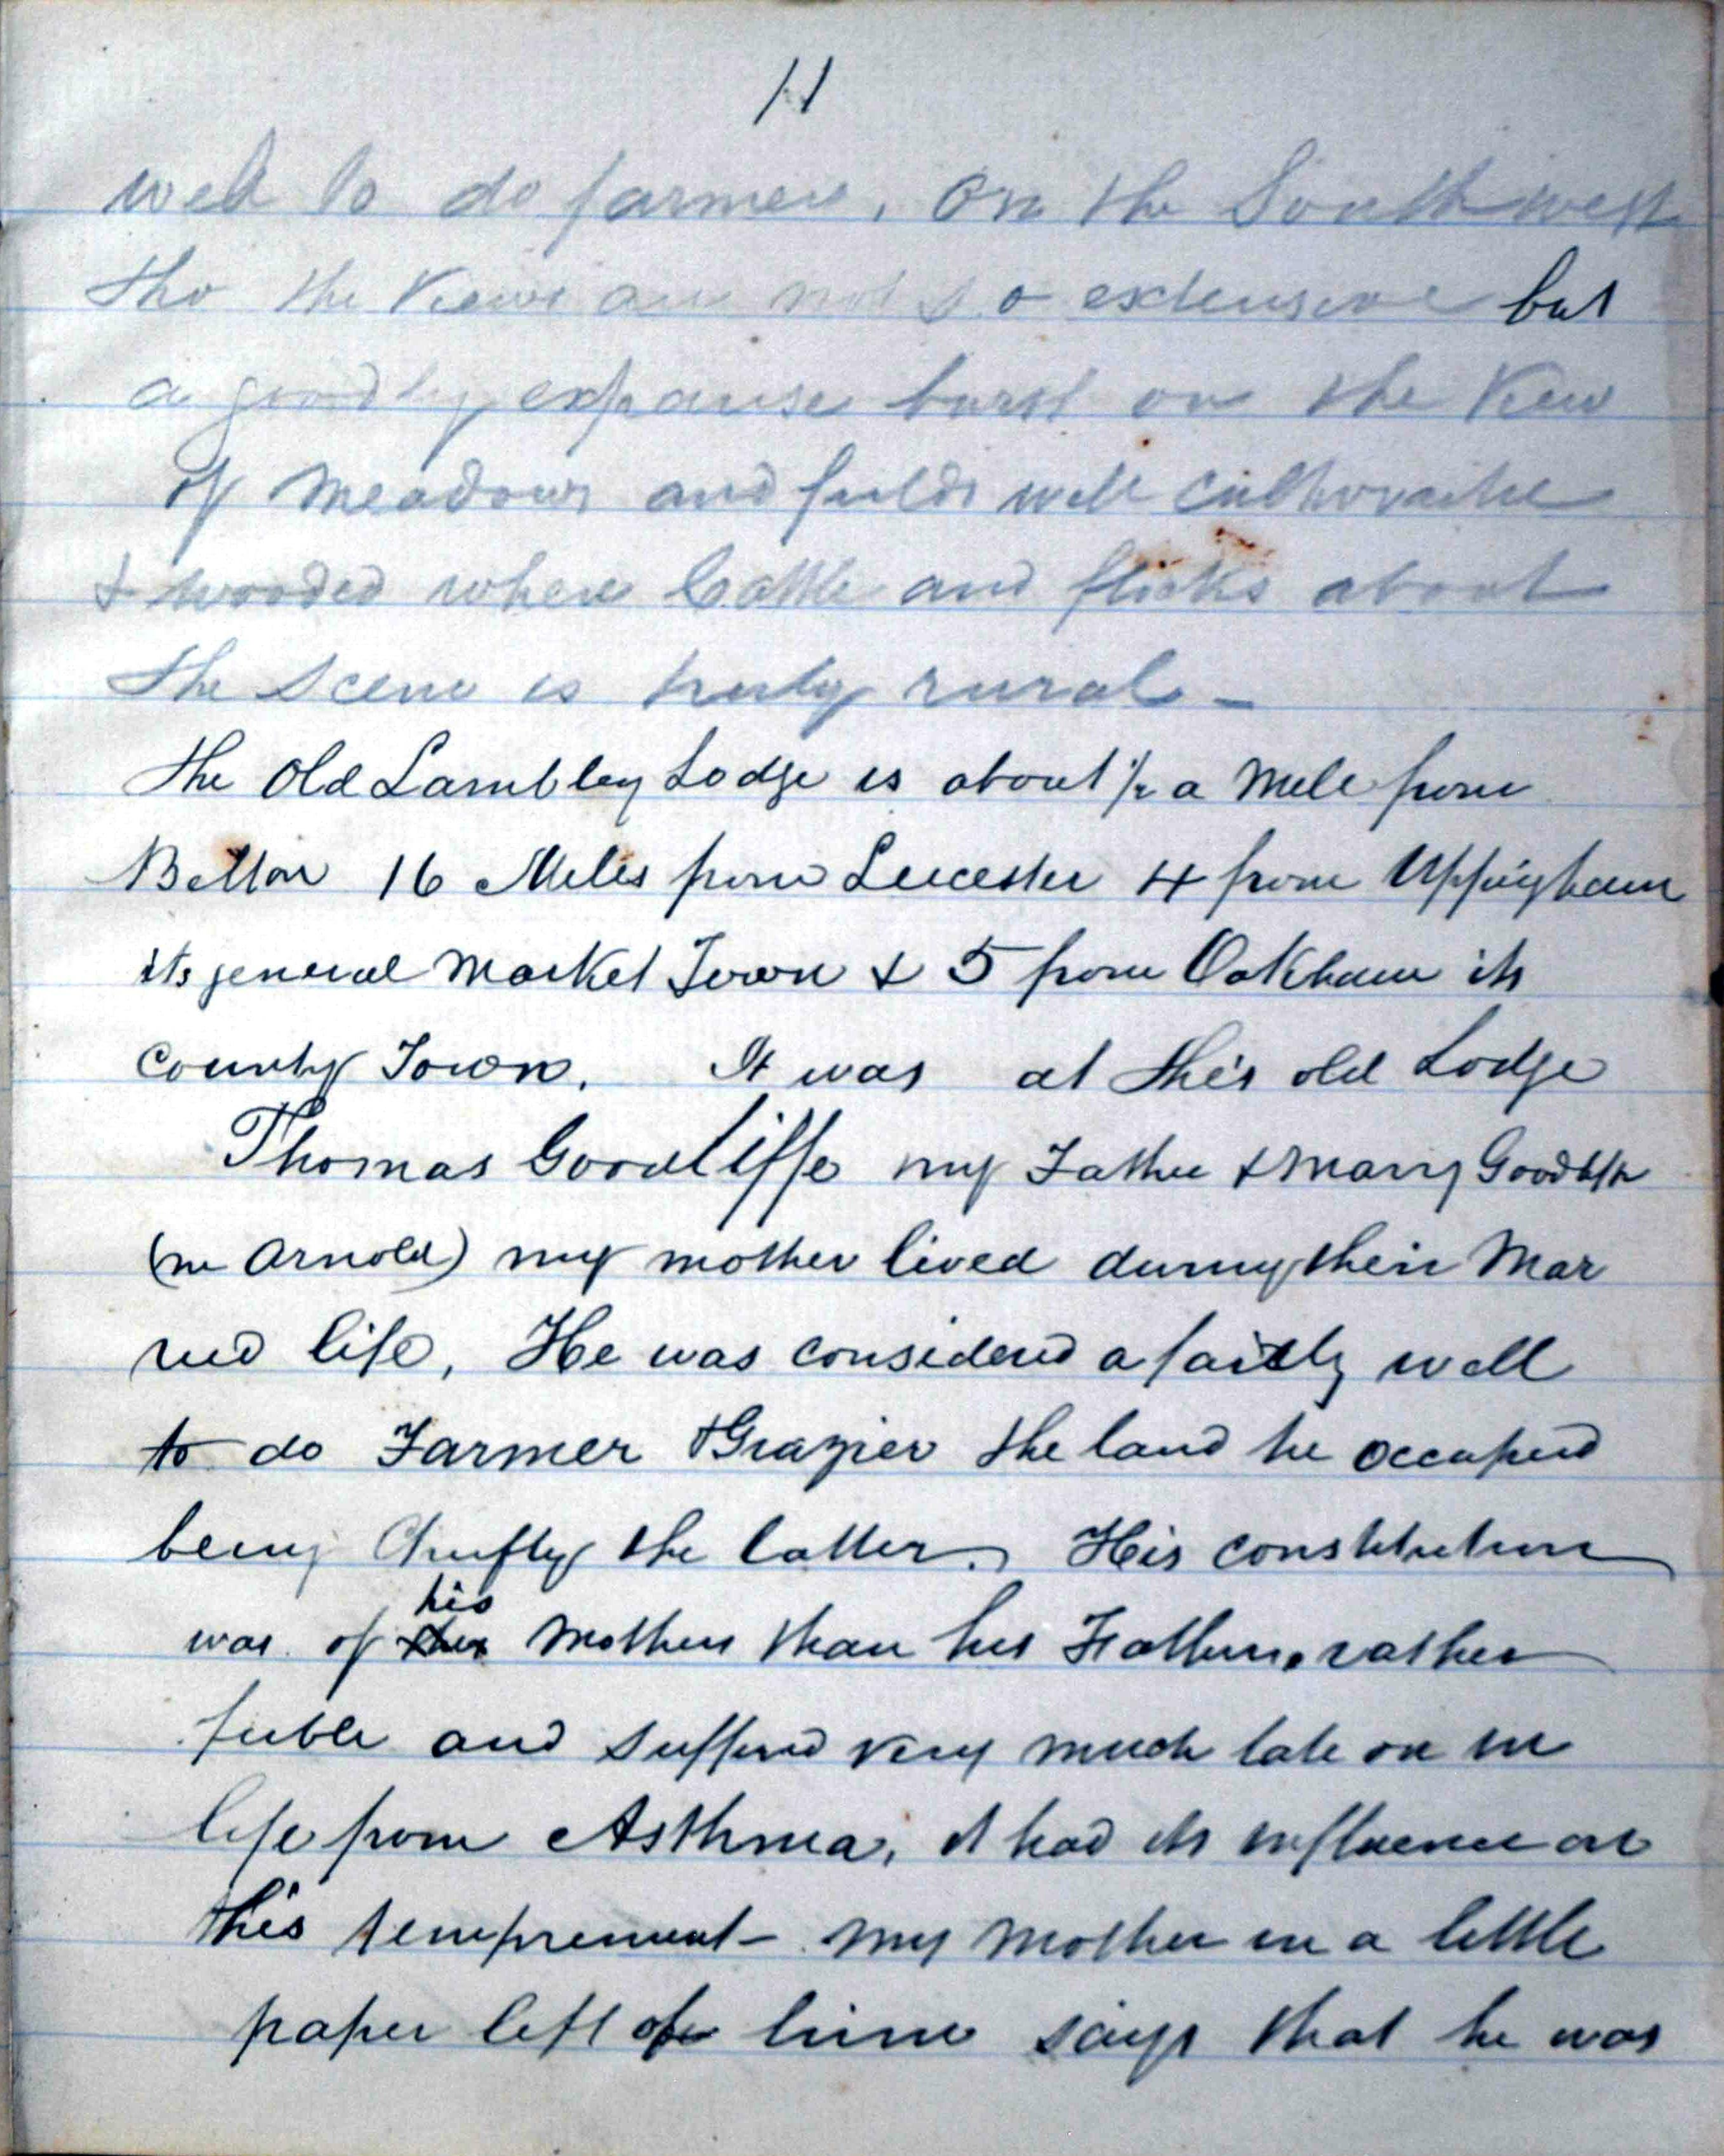 11
well to do farmers, On the South west
tho the Views are not so extensive but
a goodly expanse burst on the View
of Meadows and fields well
& wooded where Cattle and flocks about
the Scene is truly rural -
The Old Lambley Lodge is about ½ a Mile from
Belton 16 Miles from Leicester 4 from Uppingham
its general Market Town & 5 from Oakham its
County Town. It was at this old Lodge
Thomas Goodliffe my Father & Mary Goodliffe
(ne Arnold) my mother lived during their Mar
ried life, He was considered a fairly well
to do Farmer & Grazier the land he occupied
being Chiefly the latter. His constitution
was of his Mothers than his Fathers, rather
feeble and suffered very much late on in
life from Asthma, it had its influence on
his temprement - My Mother in a little
paper left of him says that he was